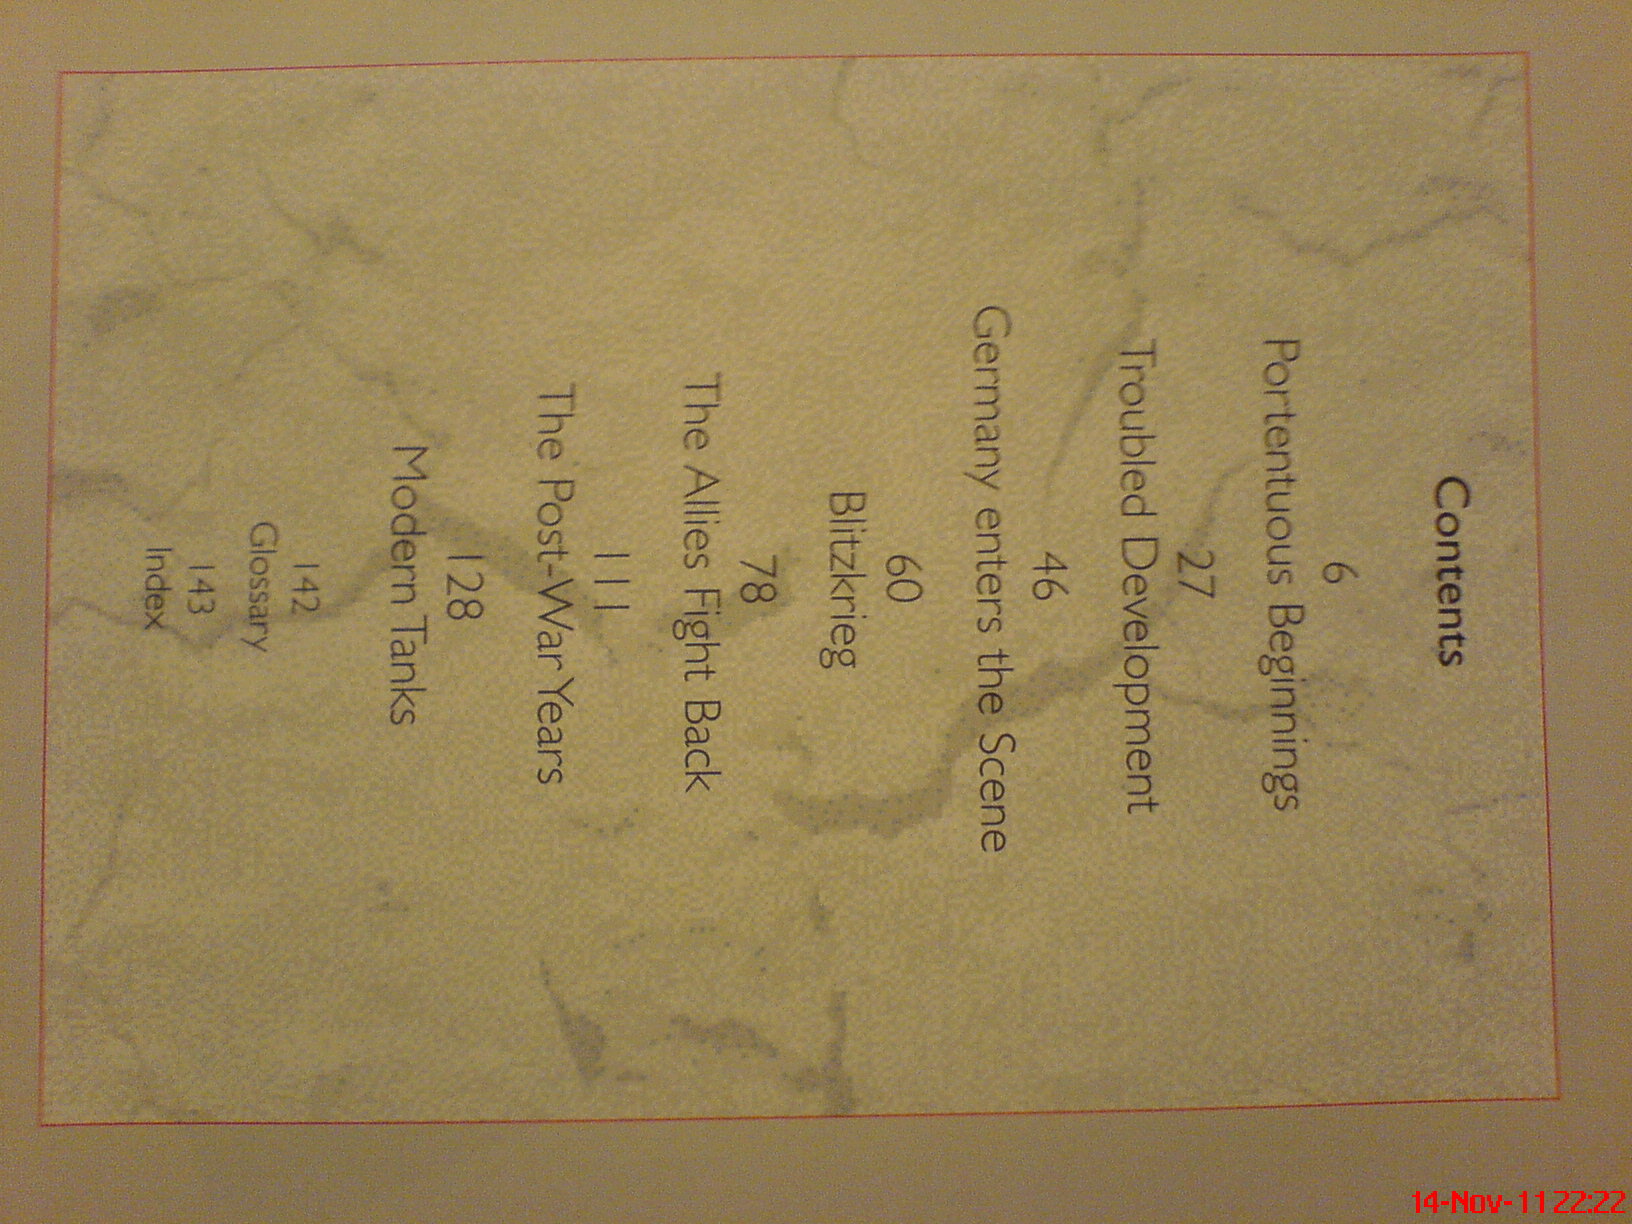 Contents
6
Portentuous Beginnings
27
Troubled Development
46
Germany enters the Scene
60
Blitzkrieg
78
The Allies Fight Back
111
The Post-War Years
128
Modern Tanks
142
Glossary
143
Index
14-Nov-11 22:22